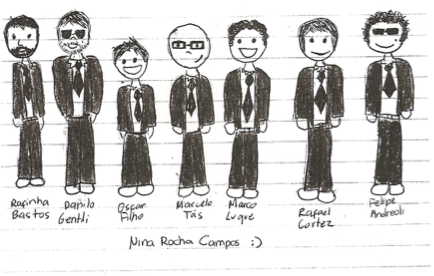 Rafinha Bastos
Danilo Gentili
Oscar Filho
Marcelo Tas
Marco Luque
Rafael Cortez
Felipe Andreoli
Nina Rocha Campos :)